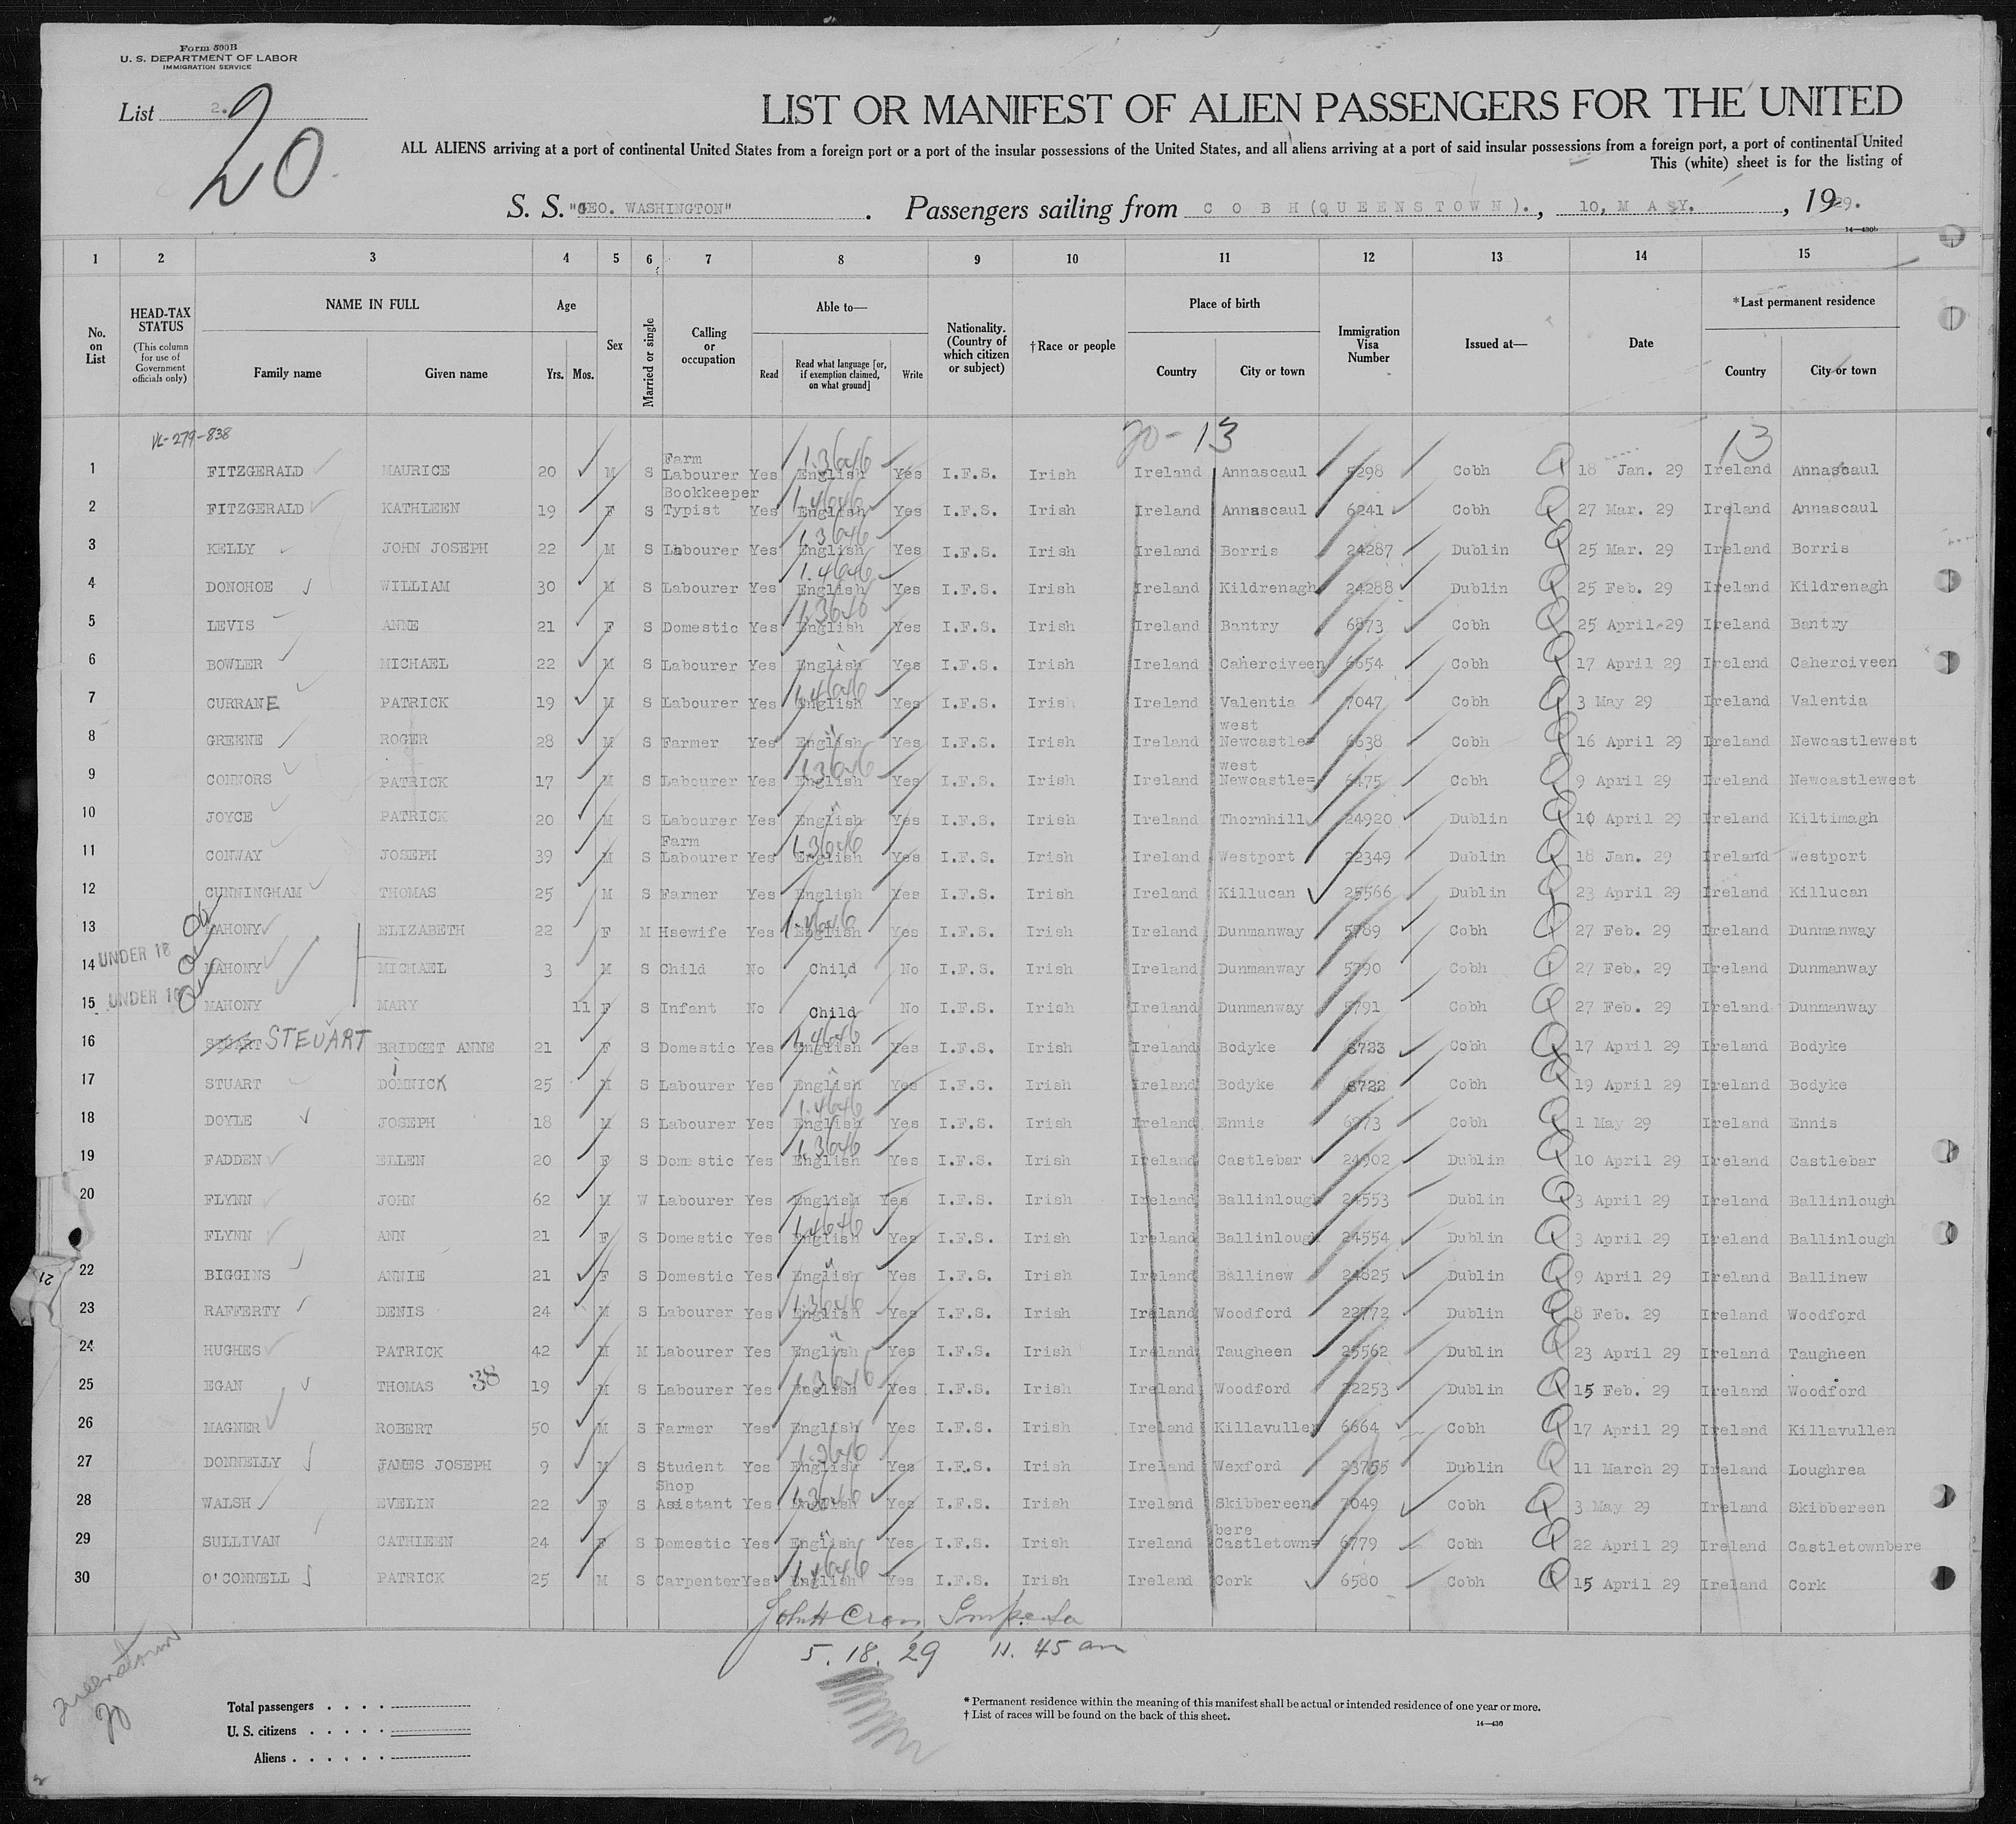 Form 500B
U. S. DEPARTMENT OF LABOR
IMMIGRATION SERVICE
List 2.
20
LIST OR MANIFEST OF ALIEN PASSENGERS FOR THE UNITED
ALL ALIENS arriving at a port of continental United States from a foreign port or a port of the insular possessions of the United States, and all aliens arriving at a port of said insular possessions from a foreign port, a port of continental United
This (white) sheet is for the listing of
S. S. "GEO. WASHINGTON" . Passengers sailing from C O B H (Q U E E N S T O W N ). , 10, M A Y. , 1929.
14—430b
1 2 3 4 5 6 7 8 9 10 11 12 13 14 15
No. on List
HEAD-TAX STATUS (This column for use of Government officials only)
NAME IN FULL Family name Given name
Age Yrs. Mos.
Sex
Married or single
Calling or occupation
Able to— Read Read what language [or, if exemption claimed, on what ground] Write
Nationality. (Country of which citizen or subject)
†Race or people
Place of birth Country City or town
Immigration Visa Number
Issued at—
Date
*Last permanent residence Country City or town
VL-279-838
20-13 13
1 FITZGERALD MAURICE 20 M S Farm Labourer Yes English 1.3646 Yes I.F.S. Irish Ireland Annascaul 5298 Cobh 18 Jan. 29 Ireland Annascaul
2 FITZGERALD KATHLEEN 19 F S Bookkeeper Typist Yes English 1.4646 Yes I.F.S. Irish Ireland Annascaul 6241 Cobh 27 Mar. 29 Ireland Annascaul
3 KELLY JOHN JOSEPH 22 M S Labourer Yes English 1.3646 Yes I.F.S. Irish Ireland Borris 24287 Dublin 25 Mar. 29 Ireland Borris
4 DONOHOE WILLIAM 30 M S Labourer Yes English 1.4646 Yes I.F.S. Irish Ireland Kildrenagh 24288 Dublin 25 Feb. 29 Ireland Kildrenagh
5 LEVIS ANNE 21 F S Domestic Yes English 1.3646 Yes I.F.S. Irish Ireland Bantry 6873 Cobh 25 April 29 Ireland Bantry
6 BOWLER MICHAEL 22 M S Labourer Yes English " Yes I.F.S. Irish Ireland Caherciveen 6654 Cobh 17 April 29 Ireland Caherciveen
7 CURRANE PATRICK 19 M S Labourer Yes English 1.4646 Yes I.F.S. Irish Ireland Valentia 7047 Cobh 3 May 29 Ireland Valentia
8 GREENE ROGER 28 M S Farmer Yes English " Yes I.F.S. Irish Ireland Newcastle= west 6638 Cobh 16 April 29 Ireland Newcastlewest
9 CONNORS PATRICK 17 M S Labourer Yes English 1.3646 Yes I.F.S. Irish Ireland Newcastle= west 6475 Cobh 9 April 29 Ireland Newcastlewest
10 JOYCE PATRICK 20 M S Labourer Yes English " Yes I.F.S. Irish Ireland Thornhill 24920 Dublin 10 April 29 Ireland Kiltimagh
11 CONWAY JOSEPH 39 M S Farm Labourer Yes English 1.3646 Yes I.F.S. Irish Ireland Westport 22349 Dublin 18 Jan. 29 Ireland Westport
12 CUNNINGHAM THOMAS 25 M S Farmer Yes English Yes I.F.S. Irish Ireland Killucan 25566 Dublin 23 April 29 Ireland Killucan
13 MAHONY ELIZABETH 22 F M Hsewife Yes English 1.4646 Yes I.F.S. Irish Ireland Dunmanway 5789 Cobh 27 Feb. 29 Ireland Dunmanway
UNDER 16
14 MAHONY MICHAEL 3 M S Child No Child No I.F.S. Irish Ireland Dunmanway 5790 Cobh 27 Feb. 29 Ireland Dunmanway
UNDER 16
15 MAHONY MARY 11 F S Infant No Child No I.F.S. Irish Ireland Dunmanway 5791 Cobh 27 Feb. 29 Ireland Dunmanway
16 STUART STEUART BRIDGET ANNE 21 F S Domestic Yes English 1.4646 Yes I.F.S. Irish Ireland Bodyke 6723 Cobh 17 April 29 Ireland Bodyke
17 STUART DOMINICK 25 M S Labourer Yes English " Yes I.F.S. Irish Ireland Bodyke 6722 Cobh 19 April 29 Ireland Bodyke
18 DOYLE JOSEPH 18 M S Labourer Yes English 1.4646 Yes I.F.S. Irish Ireland Ennis 6973 Cobh 1 May 29 Ireland Ennis
19 FADDEN ELLEN 20 F S Domestic Yes English 1.3646 Yes I.F.S. Irish Ireland Castlebar 24902 Dublin 10 April 29 Ireland Castlebar
20 FLYNN JOHN 62 M W Labourer Yes English Yes I.F.S. Irish Ireland Ballinlough 24553 Dublin 3 April 29 Ireland Ballinlough
21 FLYNN ANN 21 F S Domestic Yes English 1.4646 Yes I.F.S. Irish Ireland Ballinlough 24554 Dublin 3 April 29 Ireland Ballinlough
22 BIGGINS ANNIE 21 F S Domestic Yes English " Yes I.F.S. Irish Ireland Ballinew 24825 Dublin 9 April 29 Ireland Ballinew
23 RAFFERTY DENIS 24 M S Labourer Yes English 1.3646 Yes I.F.S. Irish Ireland Woodford 22772 Dublin 8 Feb. 29 Ireland Woodford
24 HUGHES PATRICK 42 M M Labourer Yes English " Yes I.F.S. Irish Ireland Taugheen 25562 Dublin 23 April 29 Ireland Taugheen
25 EGAN THOMAS 38 19 M S Labourer Yes English 1.3646 Yes I.F.S. Irish Ireland Woodford 22253 Dublin 15 Feb. 29 Ireland Woodford
26 MAGNER ROBERT 50 M S Farmer Yes English Yes I.F.S. Irish Ireland Killavullen 6664 Cobh 17 April 29 Ireland Killavullen
27 DONNELLY JAMES JOSEPH 9 M S Student Yes English 1.3646 Yes I.F.S. Irish Ireland Wexford 23755 Dublin 11 March 29 Ireland Loughrea
28 WALSH EVELIN 22 F S Shop Assistant Yes English 1.3646 Yes I.F.S. Irish Ireland Skibbereen 7049 Cobh 3 May 29 Ireland Skibbereen
29 SULLIVAN CATHLEEN 24 F S Domestic Yes English " Yes I.F.S. Irish Ireland Castletown= bere 6779 Cobh 22 April 29 Ireland Castletownbere
30 O'CONNELL PATRICK 25 M S Carpenter Yes English 1.4646 Yes I.F.S. Irish Ireland Cork 6580 Cobh 15 April 29 Ireland Cork
5. 18. 29 11. 45 am
Queenstown
20
Total passengers . . . .
U. S. citizens . . . . .
Aliens . . . . . .
* Permanent residence within the meaning of this manifest shall be actual or intended residence of one year or more.
† List of races will be found on the back of this sheet.
14—430
21